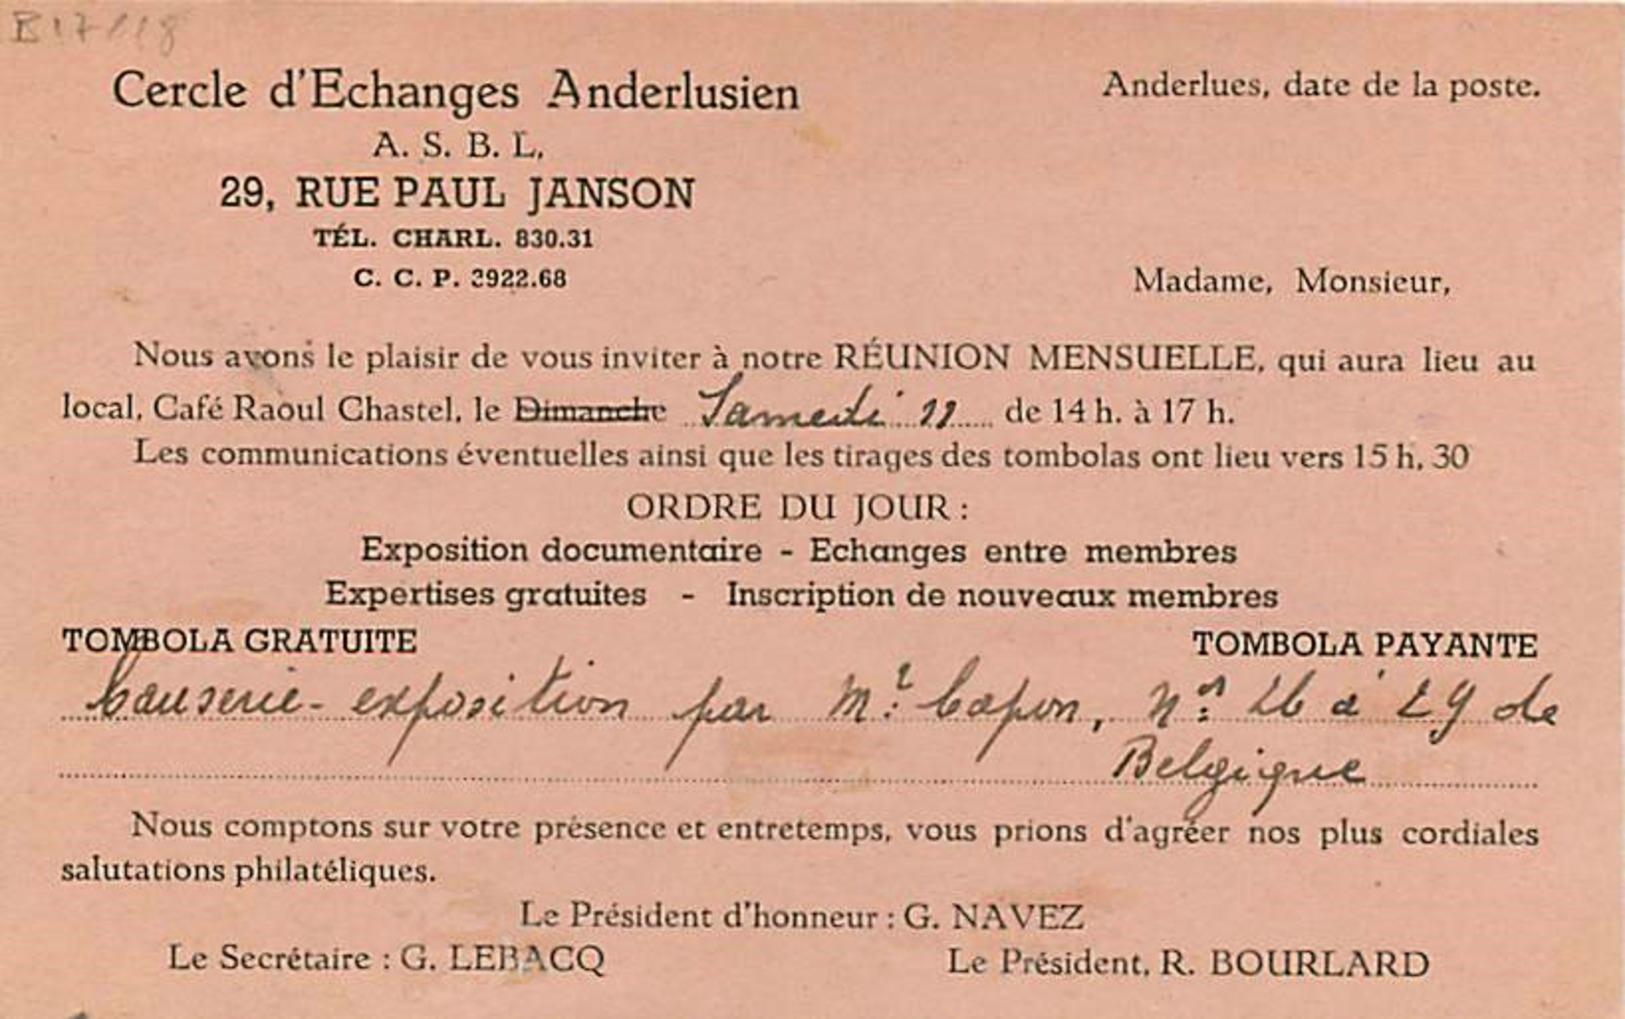 B17118
Cercle d'Echanges Anderlusien
A. S. B. L.
29, RUE PAUL JANSON
TÉL. CHARL. 830.31
C. C. P. 3922.68
Anderlues, date de la poste.
Madame, Monsieur,
Nous avons le plaisir de vous inviter à notre RÉUNION MENSUELLE, qui aura lieu au
local, Café Raoul Chastel, le Dimanche Samedi 11 de 14 h. à 17 h.
Les communications éventuelles ainsi que les tirages des tombolas ont lieu vers 15 h. 30
ORDRE DU JOUR :
Exposition documentaire - Echanges entre membres
Expertises gratuites - Inscription de nouveaux membres
TOMBOLA GRATUITE TOMBOLA PAYANTE
Causerie-exposition par Mr. Capon, Nos 26 à 29 de
Belgique
Nous comptons sur votre présence et entretemps, vous prions d'agréer nos plus cordiales
salutations philatéliques.
Le Président d'honneur : G. NAVEZ
Le Secrétaire : G. LEBACQ Le Président, R. BOURLARD